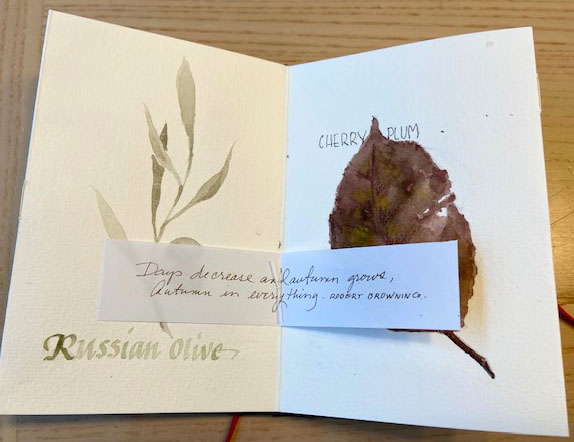 CHERRY PLUM
Days decrease and autumn grows,
Autumn in everything. ROBERT BROWNING.
Russian Olive